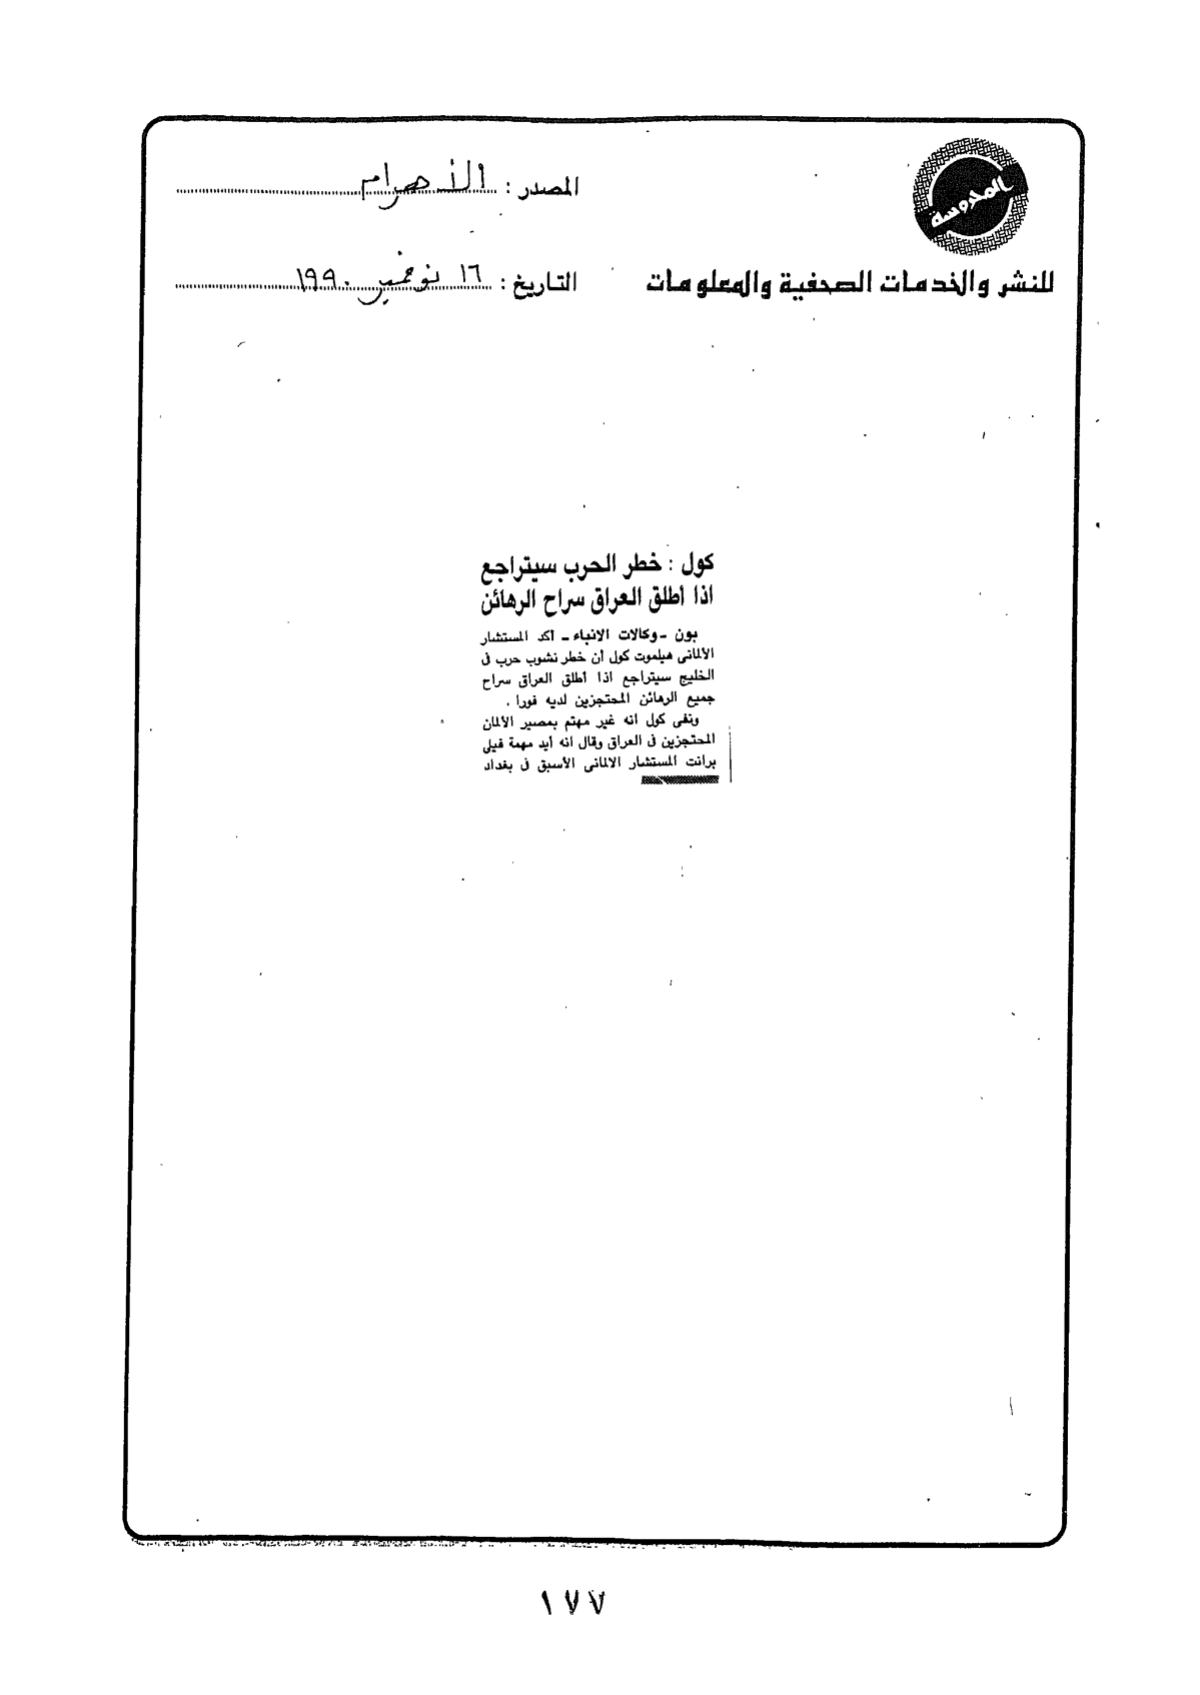 المحروسة
للنشر والخدمات الصحفية والمعلومات
المصدر : الأهرام
التاريخ : ١٦ نوفمبر ١٩٩٠
كول : خطر الحرب سيتراجع
اذا أطلق العراق سراح الرهائن
بون - وكالات الانباء - أكد المستشار
الألمانى هيلموت كول أن خطر نشوب حرب فى
الخليج سيتراجع اذا أطلق العراق سراح
جميع الرهائن المحتجزين لديه فورا .
ونفى كول انه غير مهتم بمصير الألمان
المحتجزين فى العراق وقال انه أيد مهمة فيلى
برانت المستشار الالمانى الأسبق فى بغداد
١٧٧